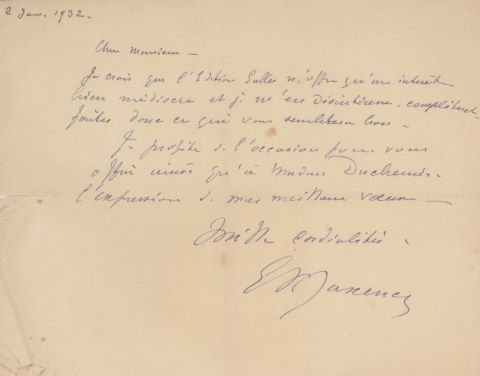 2 Janv. 1932.
Cher Monsieur —
Je crois que l'Edition Salles n'offre qu'un intérêt
bien médiocre et je m'en désintéresse complètement
faites donc ce que vous semblera bon.
Je profite de l'occasion pour vous
offrir ainsi qu'à Madame Duchemin
l'expression de mes meilleurs vœux —
Mille cordialités.